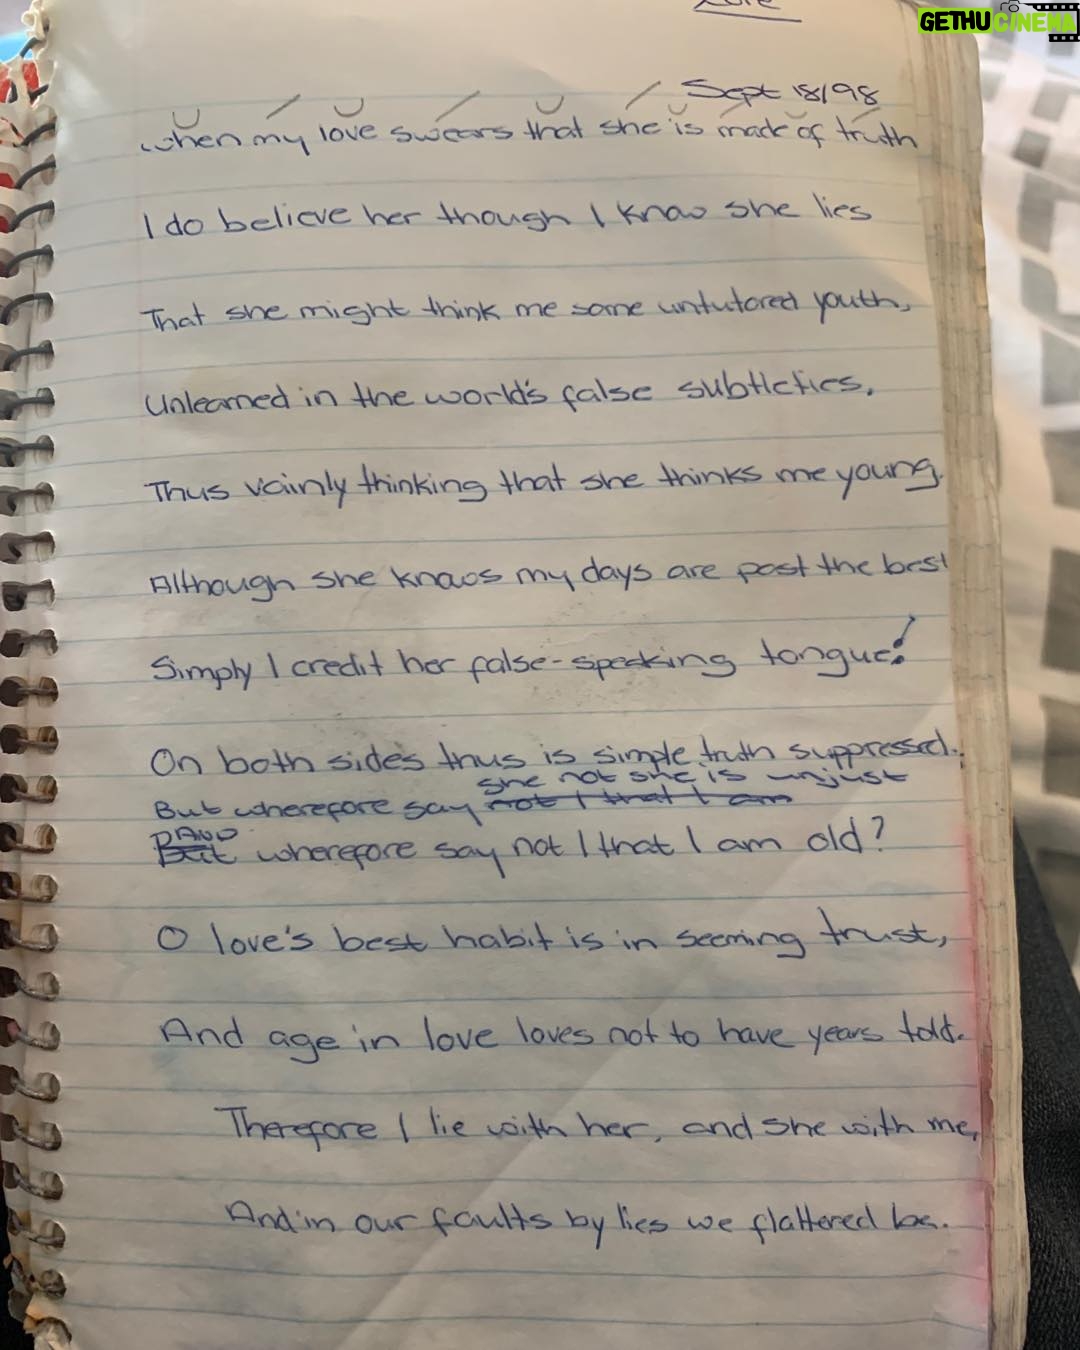 GETHUCINEMA
Sept 18/98
when my love swears that she is made of truth
I do believe her though I know she lies
That she might think me some untutored youth,
Unlearned in the world's false subtleties.
Thus vainly thinking that she thinks me young.
Although she knows my days are past the best
Simply I credit her false-speaking tongue!
On both sides thus is simple truth suppressed.
she not she is unjust
But wherefore say not I that I am
AND
But wherefore say not I that I am old?
O love's best habit is in seeming trust,
And age in love loves not to have years told.
Therefore I lie with her, and she with me,
And in our faults by lies we flattered be.